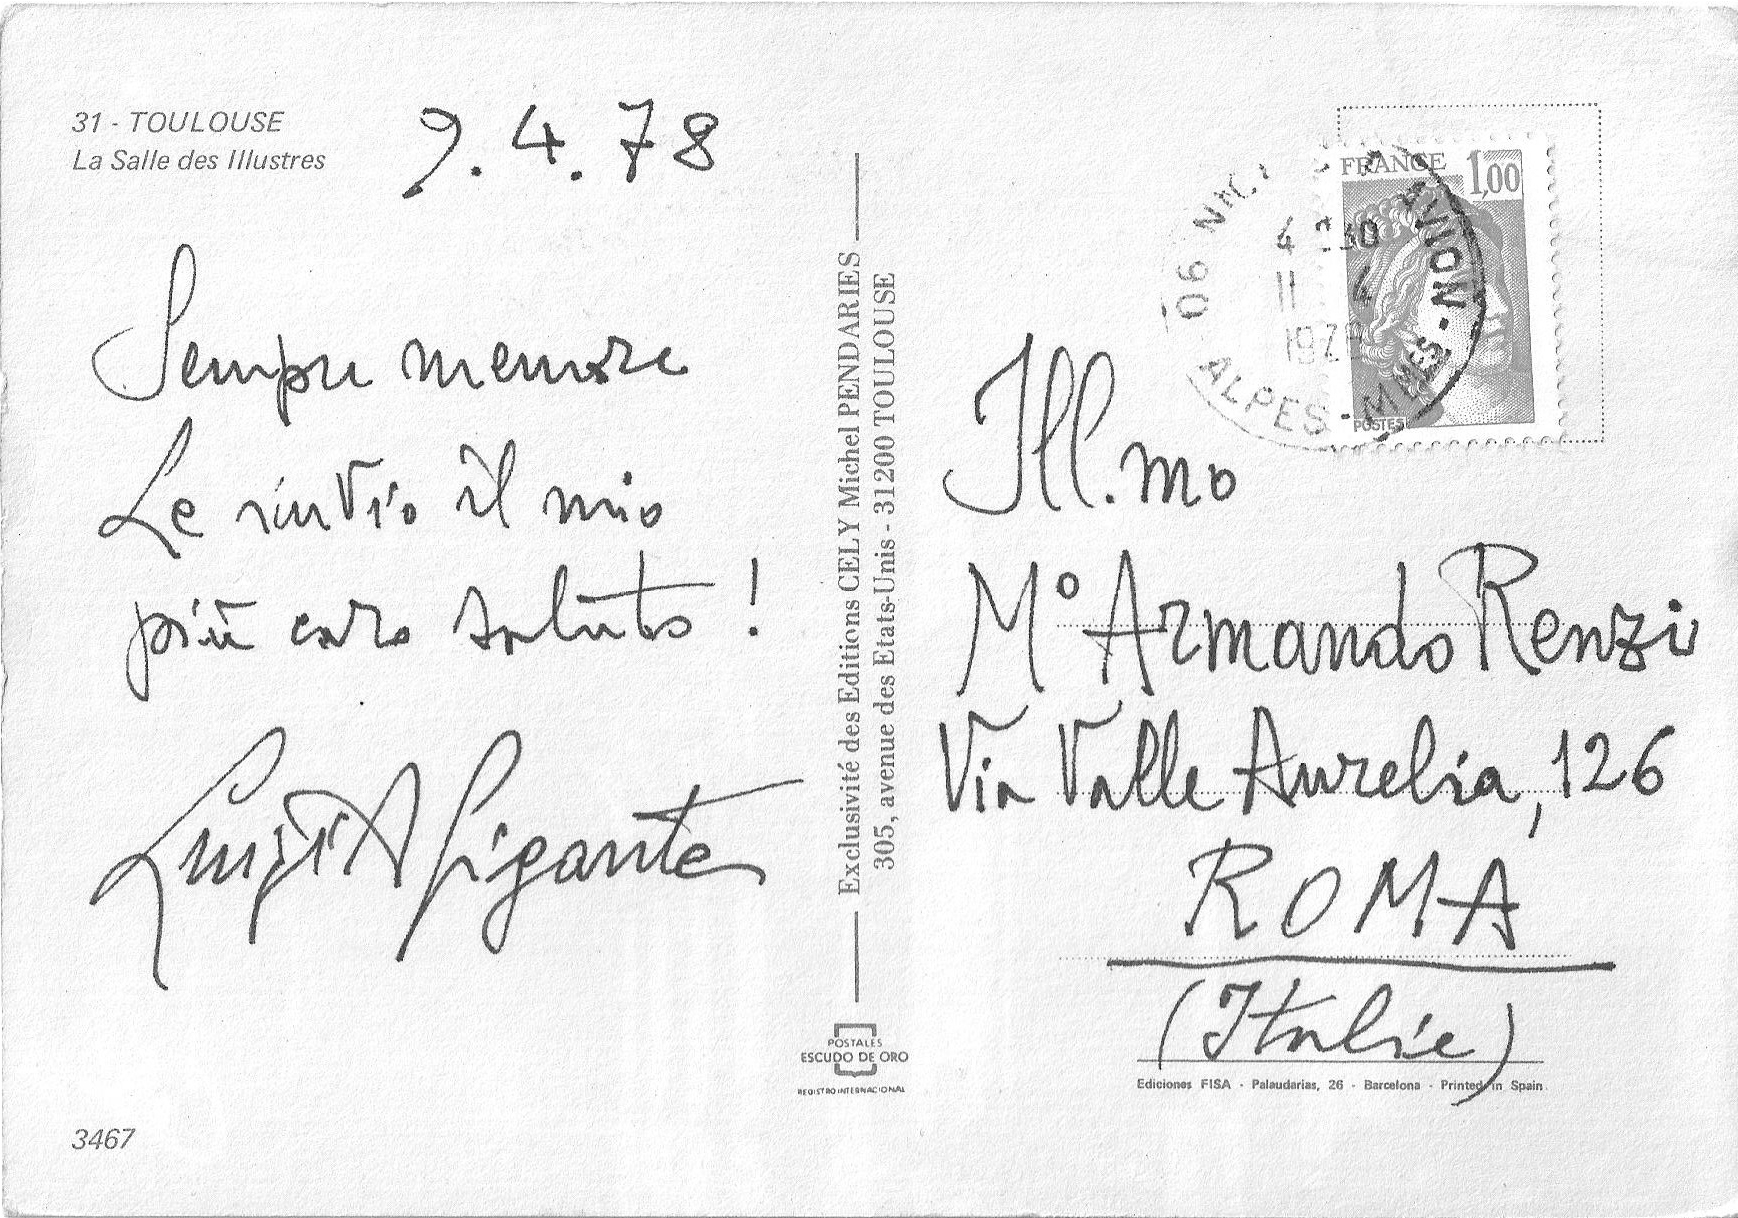 31 - TOULOUSE
La Salle des Illustres
9.4.78
Sempre memore
Le invio il mio
più caro saluto!
Luigi A Gigante
3467
Exclusivité des Editions CELY Michel PENDARIES
305, avenue des Etats-Unis - 31200 TOULOUSE
POSTALES
ESCUDO DE ORO
REGISTRO INTERNACIONAL
FRANCE 1,00
POSTES
06 AVION
11 4
1978
ALPES-MMES
Ill.mo
M° Armando Renzi
Via Valle Aurelia, 126
ROMA
(Italie)
Ediciones FISA - Palaudarias, 26 - Barcelona - Printed in Spain